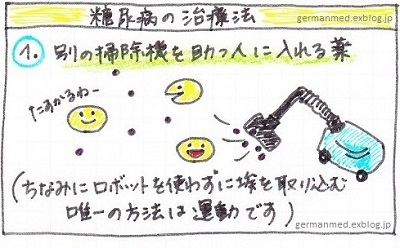 糖尿病の治療法
germanmed.exblog.jp
1. 別の掃除機を助っ人に入れる薬
たすかるねー
(ちなみにロボットを使わずに埃を取り込む
唯一の方法は運動です)
germanmed.exblog.jp